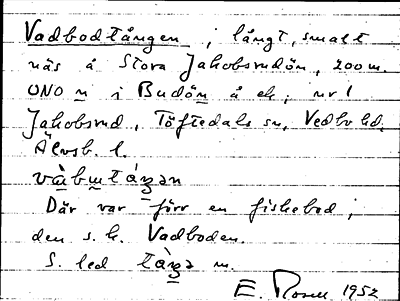 Vadbodtången ; långt, smalt
näs å Stora Jakobsrudön, 200 m.
ONO n i Budön å ek; nr 1
Jakobsrud, Töftedals sn, Vedbo hd,
Älvsb. l.
Där var förr en fiskebod,
den s. k. Vadboden.
S. led tåŋən m.
E. Rosell 1952